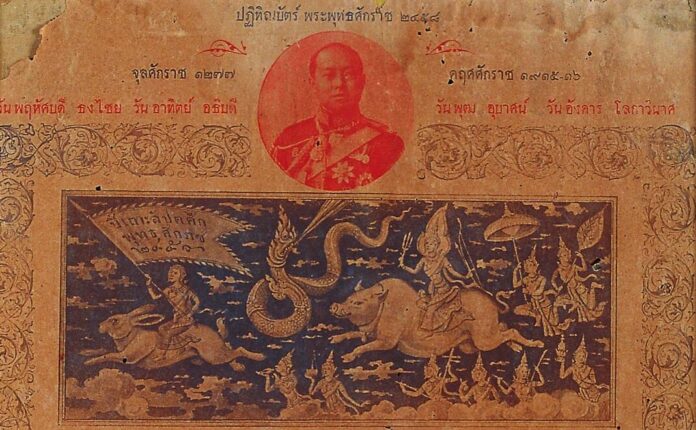 ปฏิทินบัตร์ พระพุทธศักราช ๒๔๕๘
จุลศักราช ๑๒๗๗
คฤศศักราช ๑๙๑๕-๑๖
วัน พฤหัศบดี ธงไชย วัน อาทิตย์ อธิบดี
วัน พุฒ อุบาศน์ วัน อังคาร โลกาวินาศ
ปีเถาะสัปตศก
๒๔๕๘